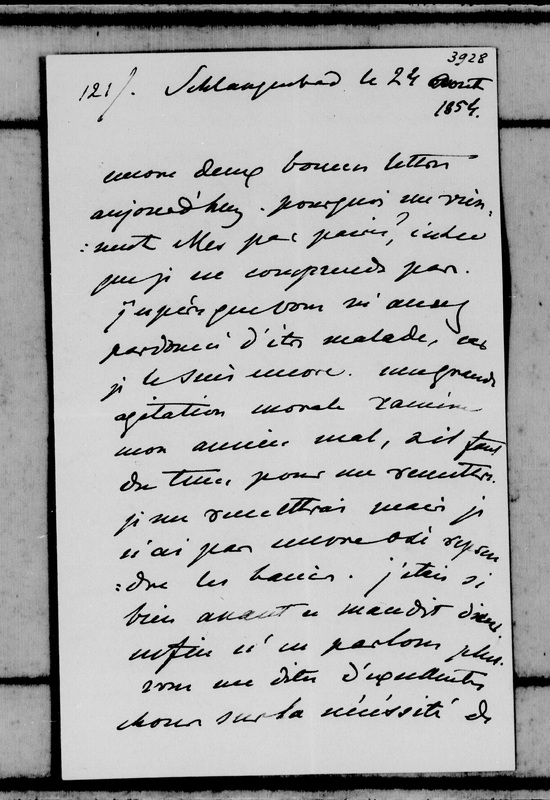 3928
121/. Schlangenbad le 24 Aout
1854.
encore deux bonnes lettres
aujourd'huy. pourquoi me vien-
:nent elles par paires, c'est ce
que je ne comprends pas.
j'espère que vous m'aurez
pardonné d'être malade, car
je le suis encore. une grande
agitation morale ramène
mon ancien mal, & il faut
du tems pour me remettre.
je me remettrai mais je
n'ai pas encore osé repren
:dre les bains. j'étais si
bien avant ce maudit
enfin n'en parlons plus.
vous me dites d'excellentes
choses sur la nécéssité de